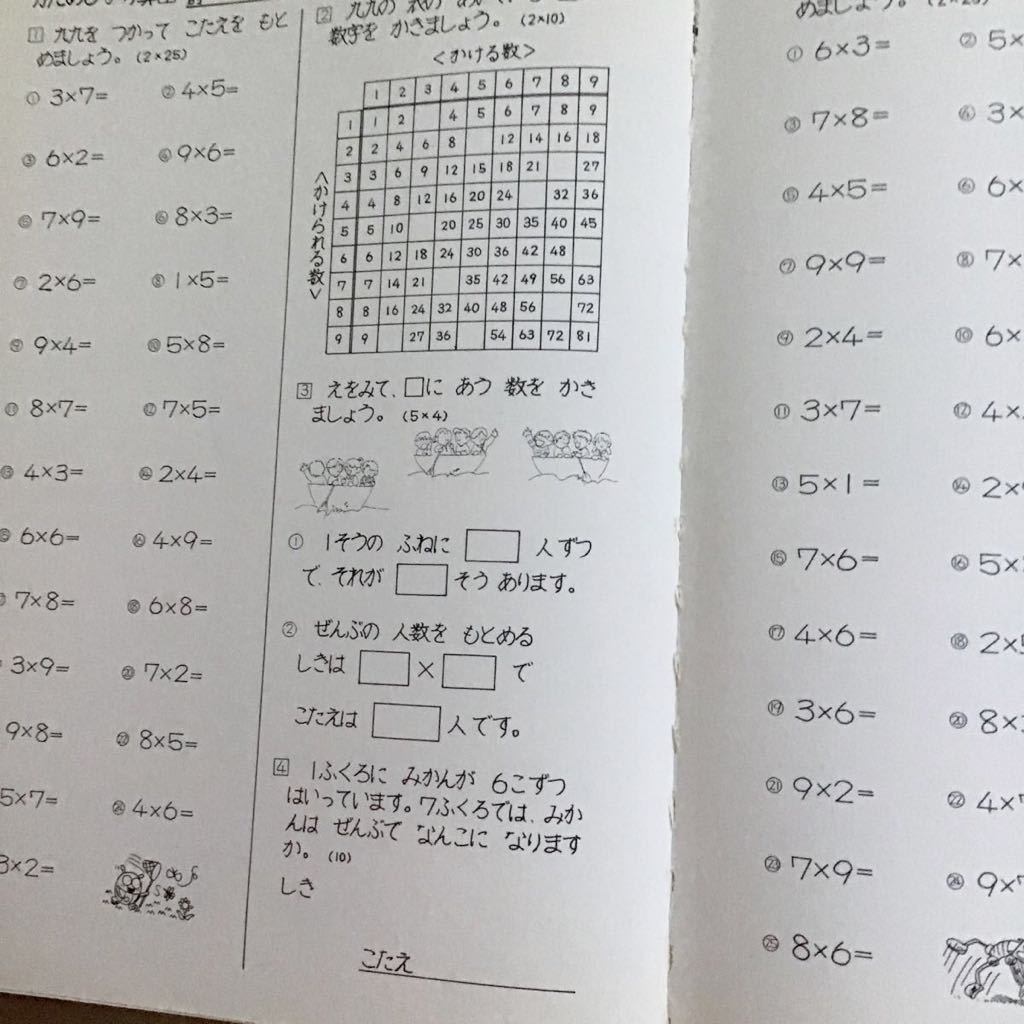 1 九九を つかって こたえを もと
めましょう。(2×25)
① 3×7= ② 4×5=
③ 6×2= ④ 9×6=
⑤ 7×9= ⑥ 8×3=
⑦ 2×6= ⑧ 1×5=
⑨ 9×4= ⑩ 5×8=
⑪ 8×7= ⑫ 7×5=
⑬ 4×3= ⑭ 2×4=
⑮ 6×6= ⑯ 4×9=
7×8= ⑱ 6×8=
3×9= ⑳ 7×2=
9×8= ㉒ 8×5=
5×7= ㉔ 4×6=
3×2=
2 九九の
数字を かきましょう。(2×10)
<かける数>
1 2 3 4 5 6 7 8 9
<かけられる数>
1 1 2 4 5 6 7 8 9
2 2 4 6 8 12 14 16 18
3 3 6 9 12 15 18 21 27
4 4 8 12 16 20 24 32 36
5 5 10 20 25 30 35 40 45
6 6 12 18 24 30 36 42 48
7 7 14 21 35 42 49 56 63
8 8 16 24 32 40 48 56 72
9 9 27 36 54 63 72 81
3 えをみて、□に あう 数を かき
ましょう。(5×4)
① 1そうの ふねに □ 人ずつ
で、それが □ そう あります。
② ぜんぶの 人数を もとめる
しきは □ × □ で
こたえは □ 人です。
4 1ふくろに みかんが 6こずつ
はいっています。7ふくろでは、みか
んは ぜんぶで なんこに なります
か。(10)
しき
こたえ
めましょう。
① 6×3= ② 5×
③ 7×8= 3×
4×5= ⑥ 6×
⑦ 9×9= ⑧ 7×
⑨ 2×4= ⑩ 6×
⑪ 3×7= ⑫ 4×
⑬ 5×1= ⑭ 2×
⑮ 7×6= ⑯ 5×
⑰ 4×6= ⑱ 2×5
⑲ 3×6= ⑳ 8×
㉑ 9×2= ㉒ 4×7
㉓ 7×9= ㉔ 9×7
㉕ 8×6=